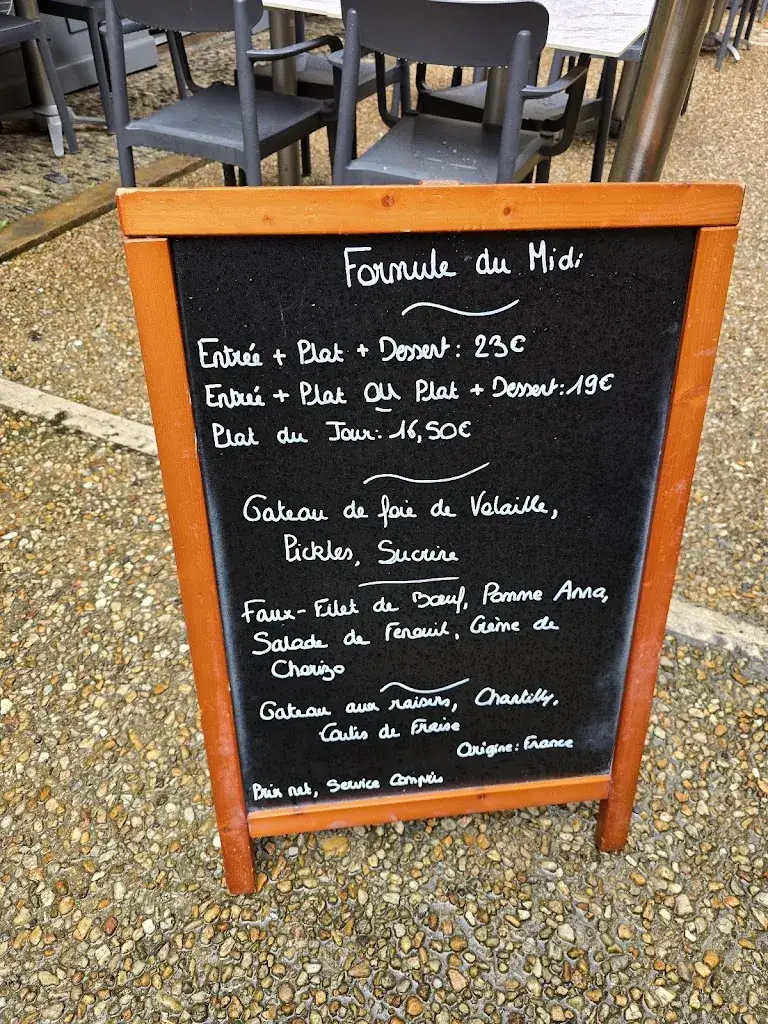 Formule du Midi
Entrée + Plat + Dessert : 23€
Entrée + Plat OU Plat + Dessert : 19€
Plat du Jour : 16,50€
Gateau de foie de Volaille,
Pickles, Sucrine
Faux-Filet de Bœuf, Pomme Anna,
Salade de Fenouil, Crème de
Chorizo
Gateau aux raisins, Chantilly,
Coulis de Fraise
Origine : France
Prix net, Service Compris